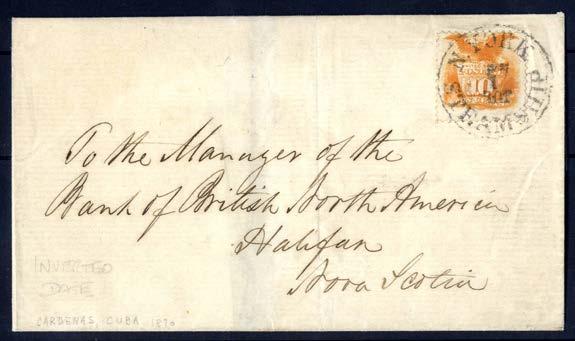 N. YORK STEAMSHIP
10
To the Manager of the
Bank of British North America
Halifax
Nova Scotia
INVERTED
DATE
CARDENAS, CUBA 1870